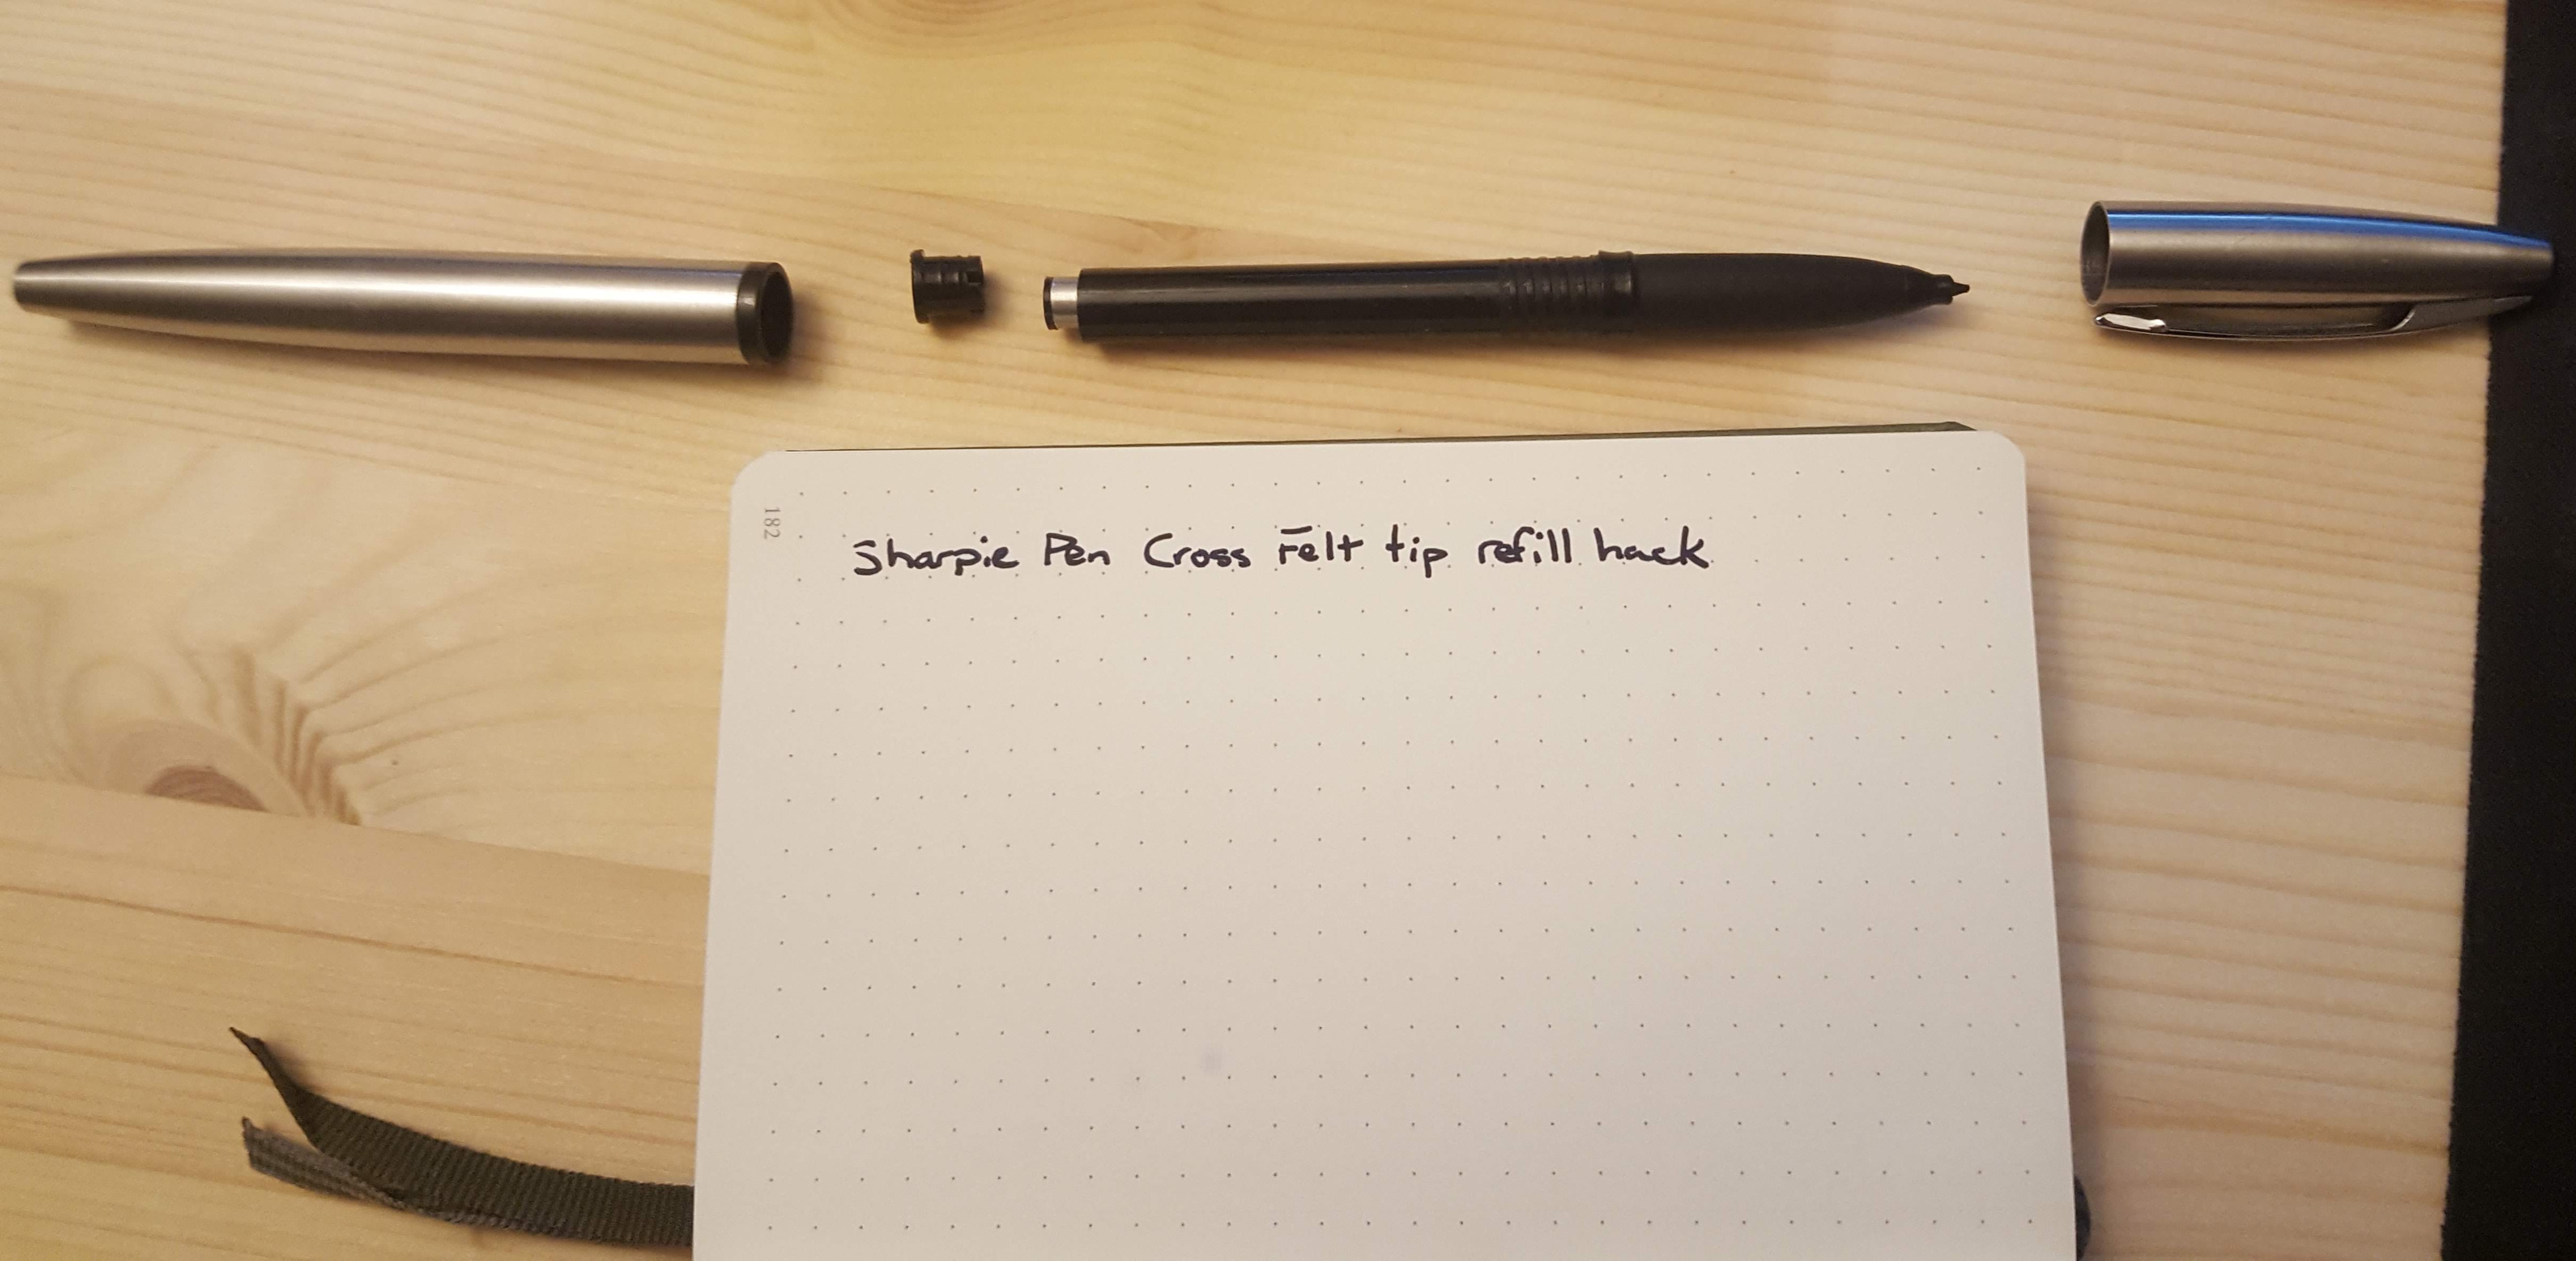 182
Sharpie Pen Cross Felt tip refill hack